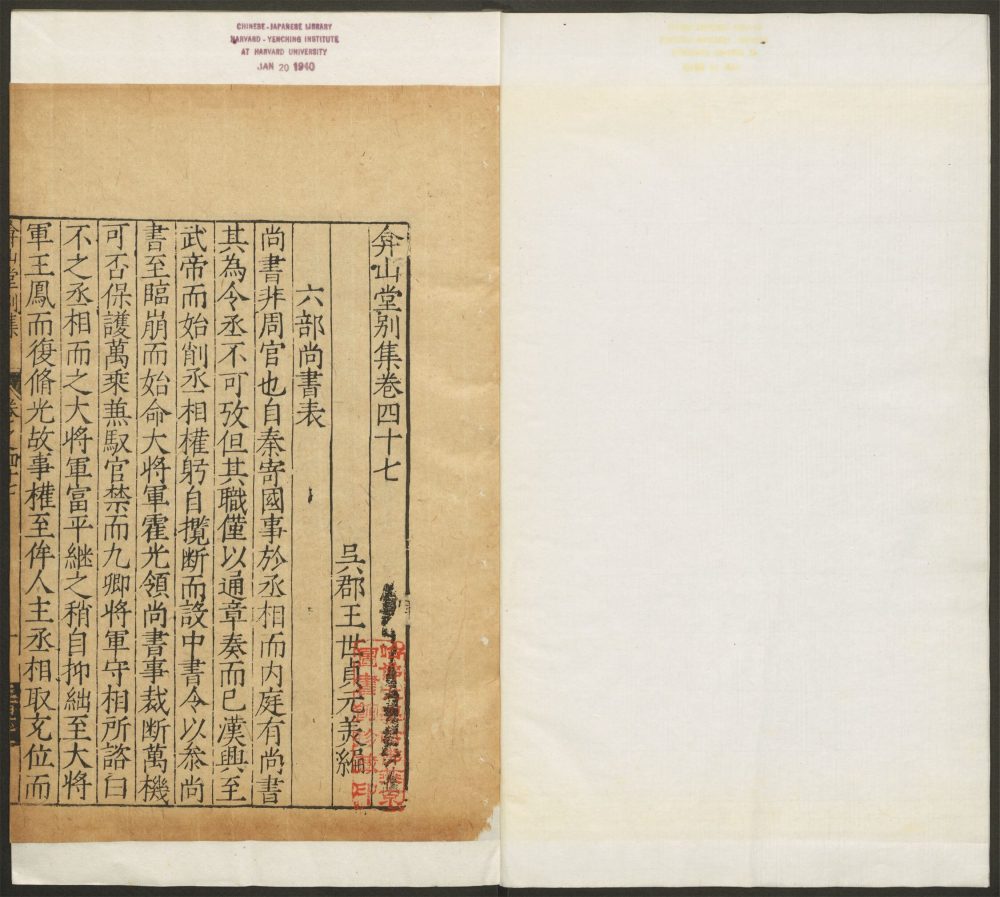 CHINESE-JAPANESE LIBRARY
HARVARD-YENCHING INSTITUTE
AT HARVARD UNIVERSITY
JAN 20 1940
弇山堂别集卷四十七
吳郡王世貞元美編
六部尚書表
尚書非周官也自秦寄國事於丞相而内庭有尚書
其為令丞不可攷但其職僅以通章奏而已漢興至
武帝而始削丞相權躬自攬断而設中書令以叅尚
書至臨崩而始命大將軍霍光領尚書事裁断萬機
可否保護萬乗蕪馭官禁而九卿將軍守相所諮曰
不之丞相而之大將軍富平継之稍自抑絀至大將
軍王鳳而復脩光故事權至侔人主丞相取充位而
弇山堂别集 卷之四十七 一